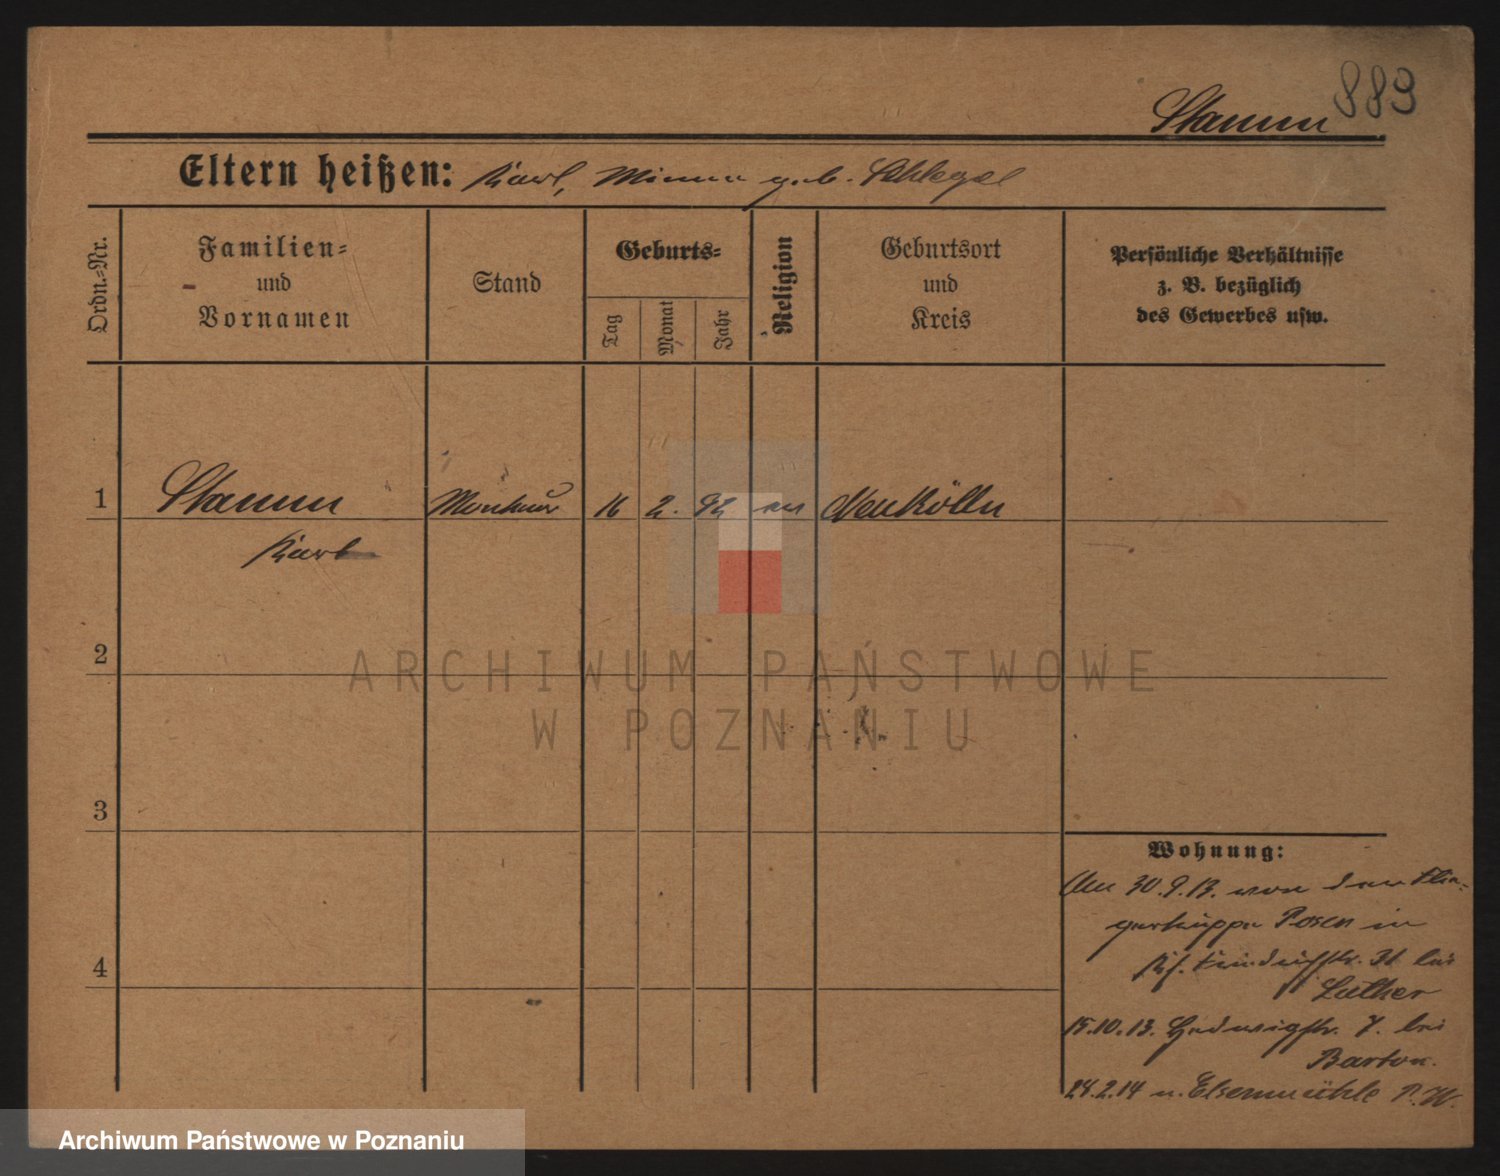 883
Stamm
Eltern heißen: Karl, Minna geb. Schlegel
Ordn.-Nr.
Familien-
und
Vornamen
Stand
Geburts-
Tag
Monat
Jahr
Religion
Geburtsort
und
Kreis
Persönliche Verhältnisse
z. B. bezüglich
des Gewerbes usw.
1 Stamm Monteur 16 2. 92 ev Neukölln
Karl
2
3
4
Wohnung:
Am 30.9.13. von der Flie-
gertruppe Posen in
bei
Luther
15.10.13. Hedwigstr. 7. bei
Barton.
24.2.14 n. Elsenmühle P.W.
ARCHIWUM PAŃSTWOWE
W POZNANIU
Archiwum Państwowe w Poznaniu